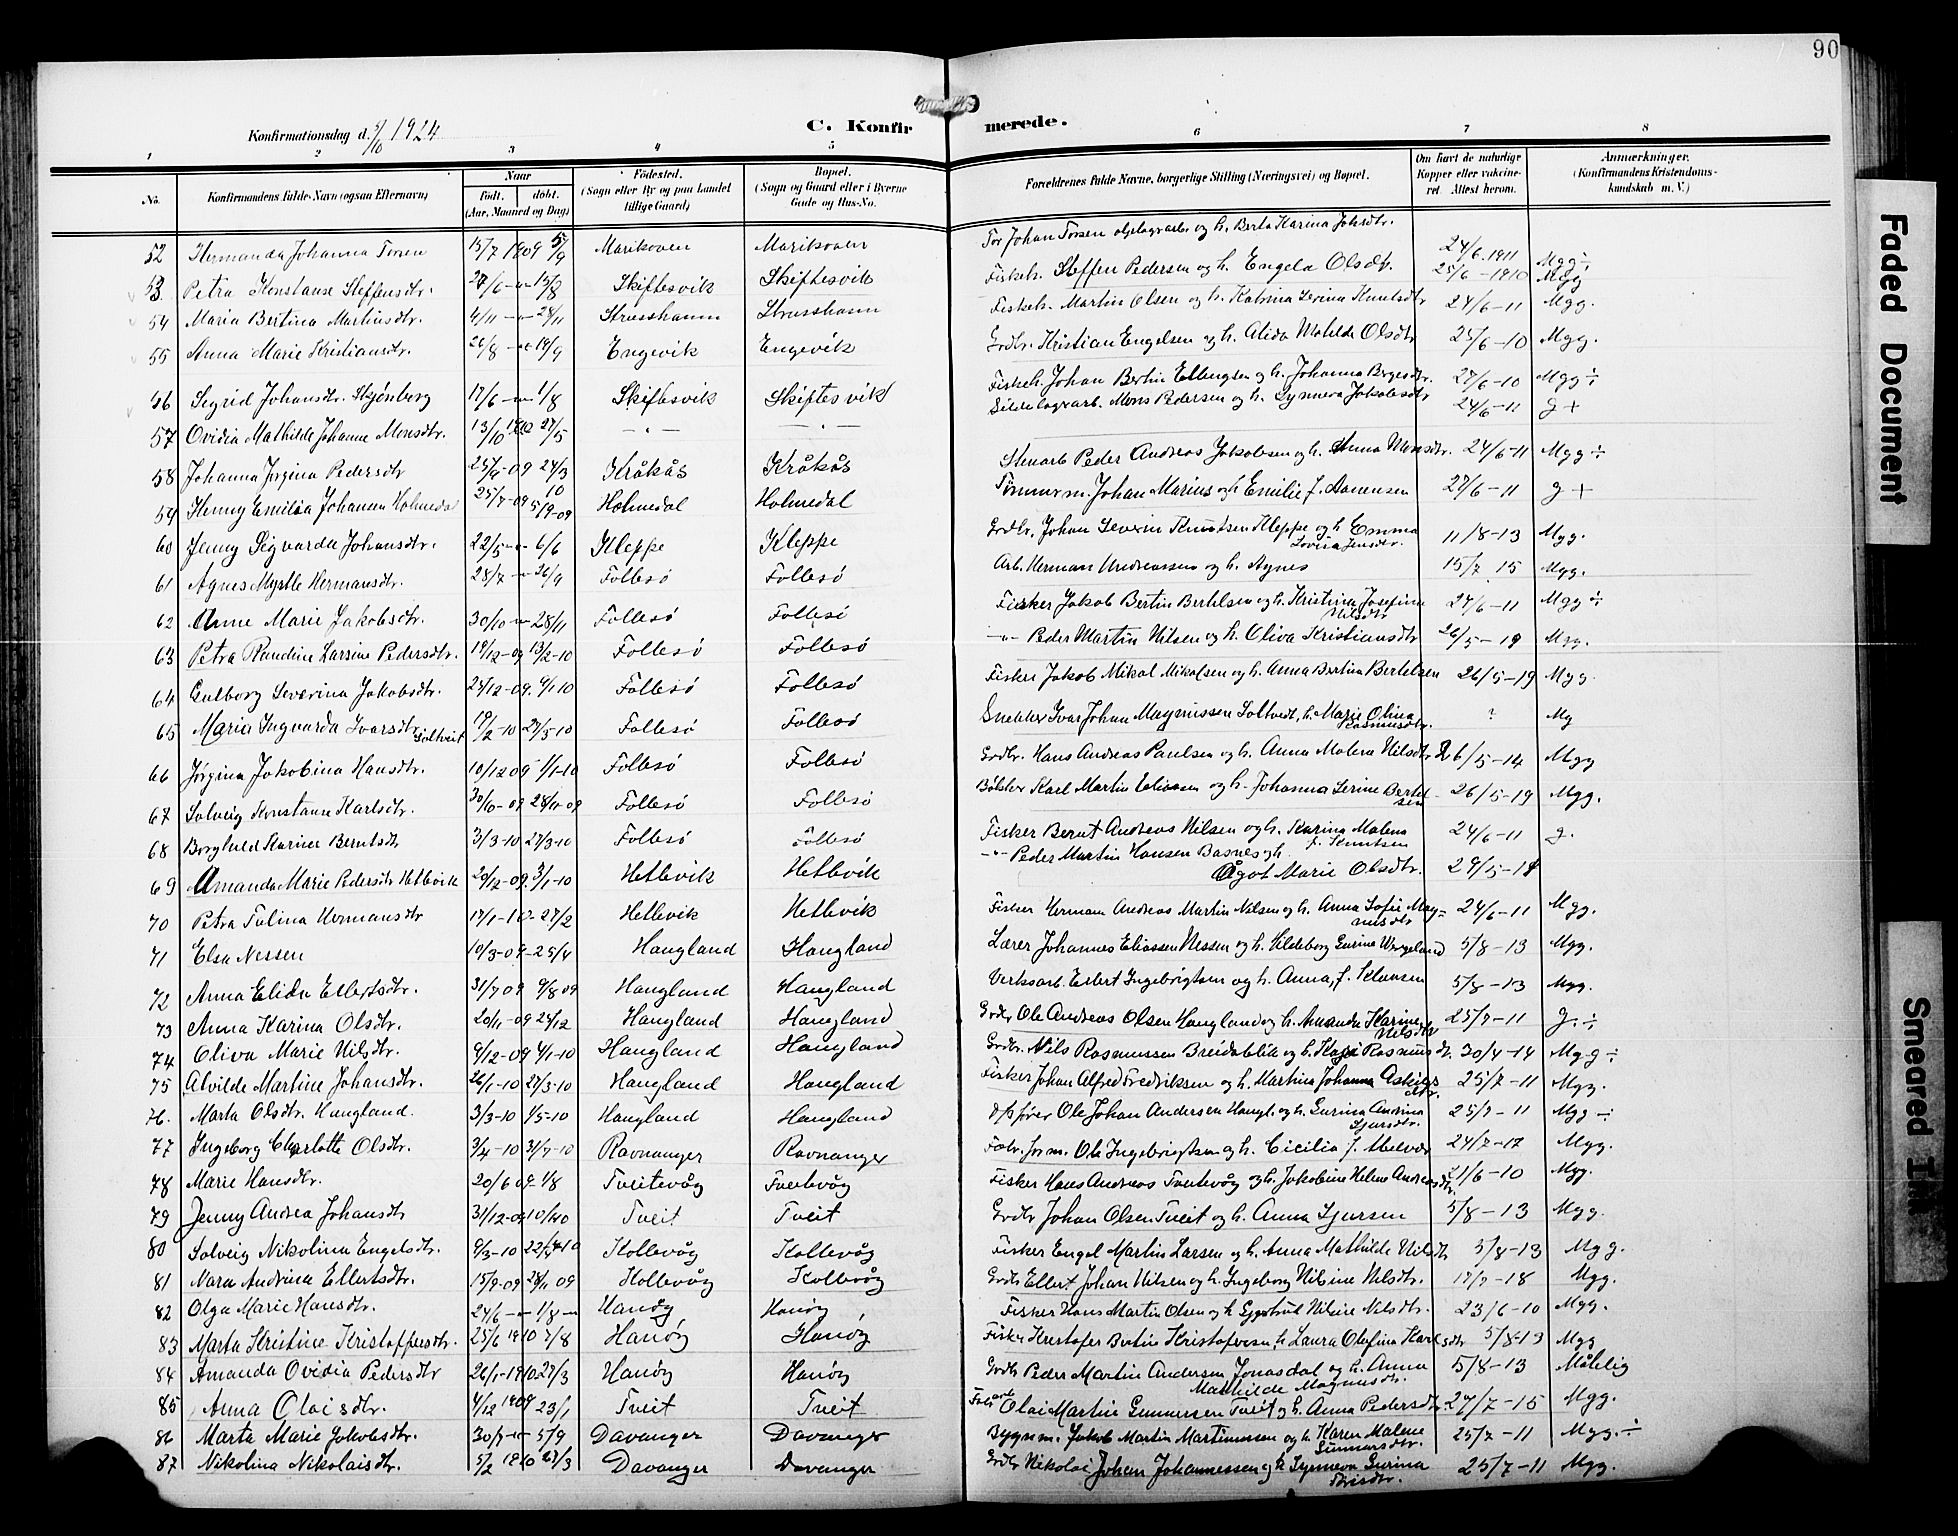 90
Konfirmationsdag d. 5/10 1924
C. Konfirmerede.
1 2 3 4 5 6 7 8
No. Konfirmandens fulde Navn (ogsaa Efternavn) Naar Født. døbt. (Aar, Maaned og Dag) Fødested. (Sogn eller By og paa Landet tillige Gaard) Bopæl. (Sogn og Gaard eller i Byerne Gade og Hus-No. Forældrenes fulde Navne, borgerlige Stilling (Næringsvei) og Bopæl. Om havt de naturlige Kopper eller vaccineret Attest herom. Anmærkninger. (Konfirmandens Kristendomskundskab m. V.)
52 Hermanda Johanna Torsen 15/7 1909 5/9 Marikoven Marikoven Tor Johan Torsen oljelagrarb og h. Berta Karina Johsdtr. 24/6 1911 Mgg ÷
53 Petra Konstanse Steffensdtr. 27/6 -"- 15/8 Skiftesvik Skiftesvik Fiskeh. Steffen Pedersen og h. Engela Olsdtr. 25/6 - 1910 Mgg
54 Maria Bertina Martinsdtr. 4/11 -"- 28/11 Strusshamn Strusshamn Fiskeh. Martin Olsen og h. Katrina Serina Knutsdtr 24/6-11 Mgg.
55 Anna Marie Kristiansdtr. 26/8 -"- 19/9 Engevik Engevik Grdbr. Kristian Engelsen og h. Alida Matilde Olsdtr 25/6-10 Mgg.
56 Sigrid Johansdtr. Skjønberg 17/6 -"- 1/8 Skiftesvik Skiftesvik Fiskeh. Johan Bertin Ellingsen og h. Johanna Børgesdtr. 27/6-10 Mgg ÷
57 Ovidia Mathilde Johanne Monsdtr. 13/10 1910 27/5 -"- -"- Sildelagrarb. Mons Pedersen og h. Synneva Jakobsdtr 24/6-11 g +
58 Johanna Jørgina Pedersdtr 09 24/3 Kråkås Kråkås Stenarb Peder Andreas Jakobsen og h. Anna Monsdtr. 24/6-11 Mgg ÷
59 Henny Emilia Johansen Holmedal 25/7-09 5/9-09 Holmedal Holmedal Tømmerm. Johan Marius og h Emilie f. Aanensen 27/6-11 g +
60 Jenny Sigvarda Johansdtr. 22/5 -"- 6/6 Kleppe Kleppe Grdbr. Johan Severin Knutsen Kleppe og h Emma Lovisa Jensdtr. 11/8-13 Mgg.
61 Agnes Myrtle Hermansdtr. 28/7 -"- 26/9 Follesö Follesö Arb. Herman Andreassen og h. Agnes 15/7 15 Mgg.
62 Anne Marie Jakobsdtr. 30/10 -"- 28/11 Follesö Follesö Fisker Jakob Bertin Bertelsen og h. Kristina Josefine Nilsdtr 24/6-11 Mgg ÷
63 Petra Randine Larsine Pedersdtr. 19/12-09 13/2-10 Follesö Follesö -"- Peder Martin Nilsen og h. Oliva Kristiansdtr 26/5-19 Mgg.
64 Gulborg Severina Jakobsdtr. 24/12-09. 9/1-10 Follesö Follesö Fisker Jakob Mikal Mikalsen og h. Anna Bertina Bertelsen 26/5-19 Mgg
65 Marie Ingvarda Ivarsdtr Soltveit 19/2-10 27/5-10 Follesö Follesö Snekker Ivar Johan Magnussen Soltvedt, h. Marie Olina Rasmusdtr. ? Mg
66 Jørgina Jakobina Hansdtr. 10/12 09 9/1-10 Follesö Follesö Grdbr. Hans Andreas Paulsen og h. Anna Malena Nilsdtr 26/5-14 Mgg
67 Solveig Konstanse Karlsdtr. 30/10-09 28/11-09 Follesö Follesö Karl Martin Eliassen og h. Johanna Serine Bertelsen 26/5-19 Mgg.
68 Borghild Karine Berntsdtr 3/3-10 27/3-10 Follesö Follesö Fisker Bernt Andreas Nilsen og h. Karina Malena f. Knutsen 24/6-11 g.
69 Amanda Marie Pedersdtr Hetlevik 20/12-09. 3/1-10 Hetlevik Hetlevik -"- Peder Martin Hansen Basnes og h. Ågot Marie Olsdtr. 29/5-18
70 Petra Talina Hermansdtr 17/1-10 27/2 Hetlevik Hetlevik Fisker Herman Andreas Martin Nilsen og h. Anna Sofie Magnusdtr 24/6-11 Mgg.
71 Elsa Nessen 10/3-09 25/4 Haugland Haugland Lærer Johannes Eliassen Nessen og h. Hildeborg Gurine Wergeland 5/8-13 Mgg.
72 Anna Elida Ellertsdtr. 31/7 09 9/8 09 Haugland Haugland Verksarb. Ellert Ingebrigtsen og h. Anna, f. 5/8-13 Mgg.
73 Anna Karina Olsdtr. 20/11-09 24/12 Haugland Haugland Grdbr Ole Andreas Olsen Haugland og h. Amanda Karine Nilsdtr 25/7-11 g. ÷
74 Oliva Marie Nilsdtr. 9/12-09 9/1-10 Haugland Haugland Grdbr. Nils Rasmussen Breidablik og h. Kari Rasmusdtr. 30/4-14 Mgg ÷
75 Alvilde Martine Johansdtr. 26/1-10 27/3-10 Haugland Haugland Fisker Johan Alfred Fredriksen og h. Martina Johanna Askilds dtr. 25/7-11 Mgg.
76. Marta Olsdtr. Haugland. 3/3-10 1/5-10 Haugland Haugland Ole Johan Andersen Haugl. og h. Gurina Andrina Sjursdtr. 25/7-11 Mgg ÷
77 Ingeborg Charlotte Olsdtr. 3/4-10 31/7-10 Ravnanger Ravnanger Ole Ingebrigtsen og h. Cicilia f. 24/7-17 Mgg.
78 Marie Hansdtr. 20/6 09 1/8 Tveitevåg Tveitevåg Fisker Hans Andreas Tveitevåg og h. Jakobine Helene Andreasdtr. 21/6-10 Mgg.
79 Jenny Andrea Johansdtr 31/12-09 10/4 10 Tveit Tveit Grdbr Johan Olsen Tveit og h. Anna Sjursen 5/8-13 Mgg.
80 Solveig Nikolina Engelsdtr. 9/3-10 22/5-10 Kollevåg Kollevåg Fisker Engel Martin Larsen og h. Anna Mathilde Nilsdtr 5/8-13 Mgg.
81 Nara Andrina Ellertsdtr. 15/9-09 28/11 09 Kollevåg Kollevåg Grdbr Ellert Johan Nilsen og h. Ingeborg Nilsine Nilsdtr. 17/7-18 Mgg.
82 Olga Marie Hansdtr. 24/6 -"- 1/8 -"- Hanöy Hanöy Fisker Hans Martin Olsen og h Nilsine Nilsdtr. 23/6-10 Mgg.
83 Marta Kristine Kristoffersdtr. 25/6 1910 7/8 Hanöy Hanöy Fisker Kristofer Bertin Kristofersen, h. Laura Olefina Karlsdtr 5/8-13 Mgg
84 Amanda Ovidia Pedersdtr 26/1-1910 27/3 Hanöy Hanöy Grdbr Peder Martin Andersen Jonasdal og h. Anna Mathilde Magnusdtr. 5/8-13 Måtelig
85 Anna Olaisdtr. 4/12 1909 23/1 Tveit Tveit Olai Martin Gunnersen Tveit og h. Anna Pedersdtr. 27/7-15 Mgg.
86 Marta Marie Jakobsdtr. 30/7 -"- 5/9 Davanger Davanger Bygnm. Jakob Martin Martinussen og h. Karen Malene Gunnarsdtr. 25/7-11 Mgg. ÷
87 Nikolina Nikolaisdtr. 5/2 1910 28/3 Davanger Davanger Grdbr Nikolai Johan Johannessen og h Synneva Gurina 25/7-11 Mgg.
Faded Document
Smeared Ink